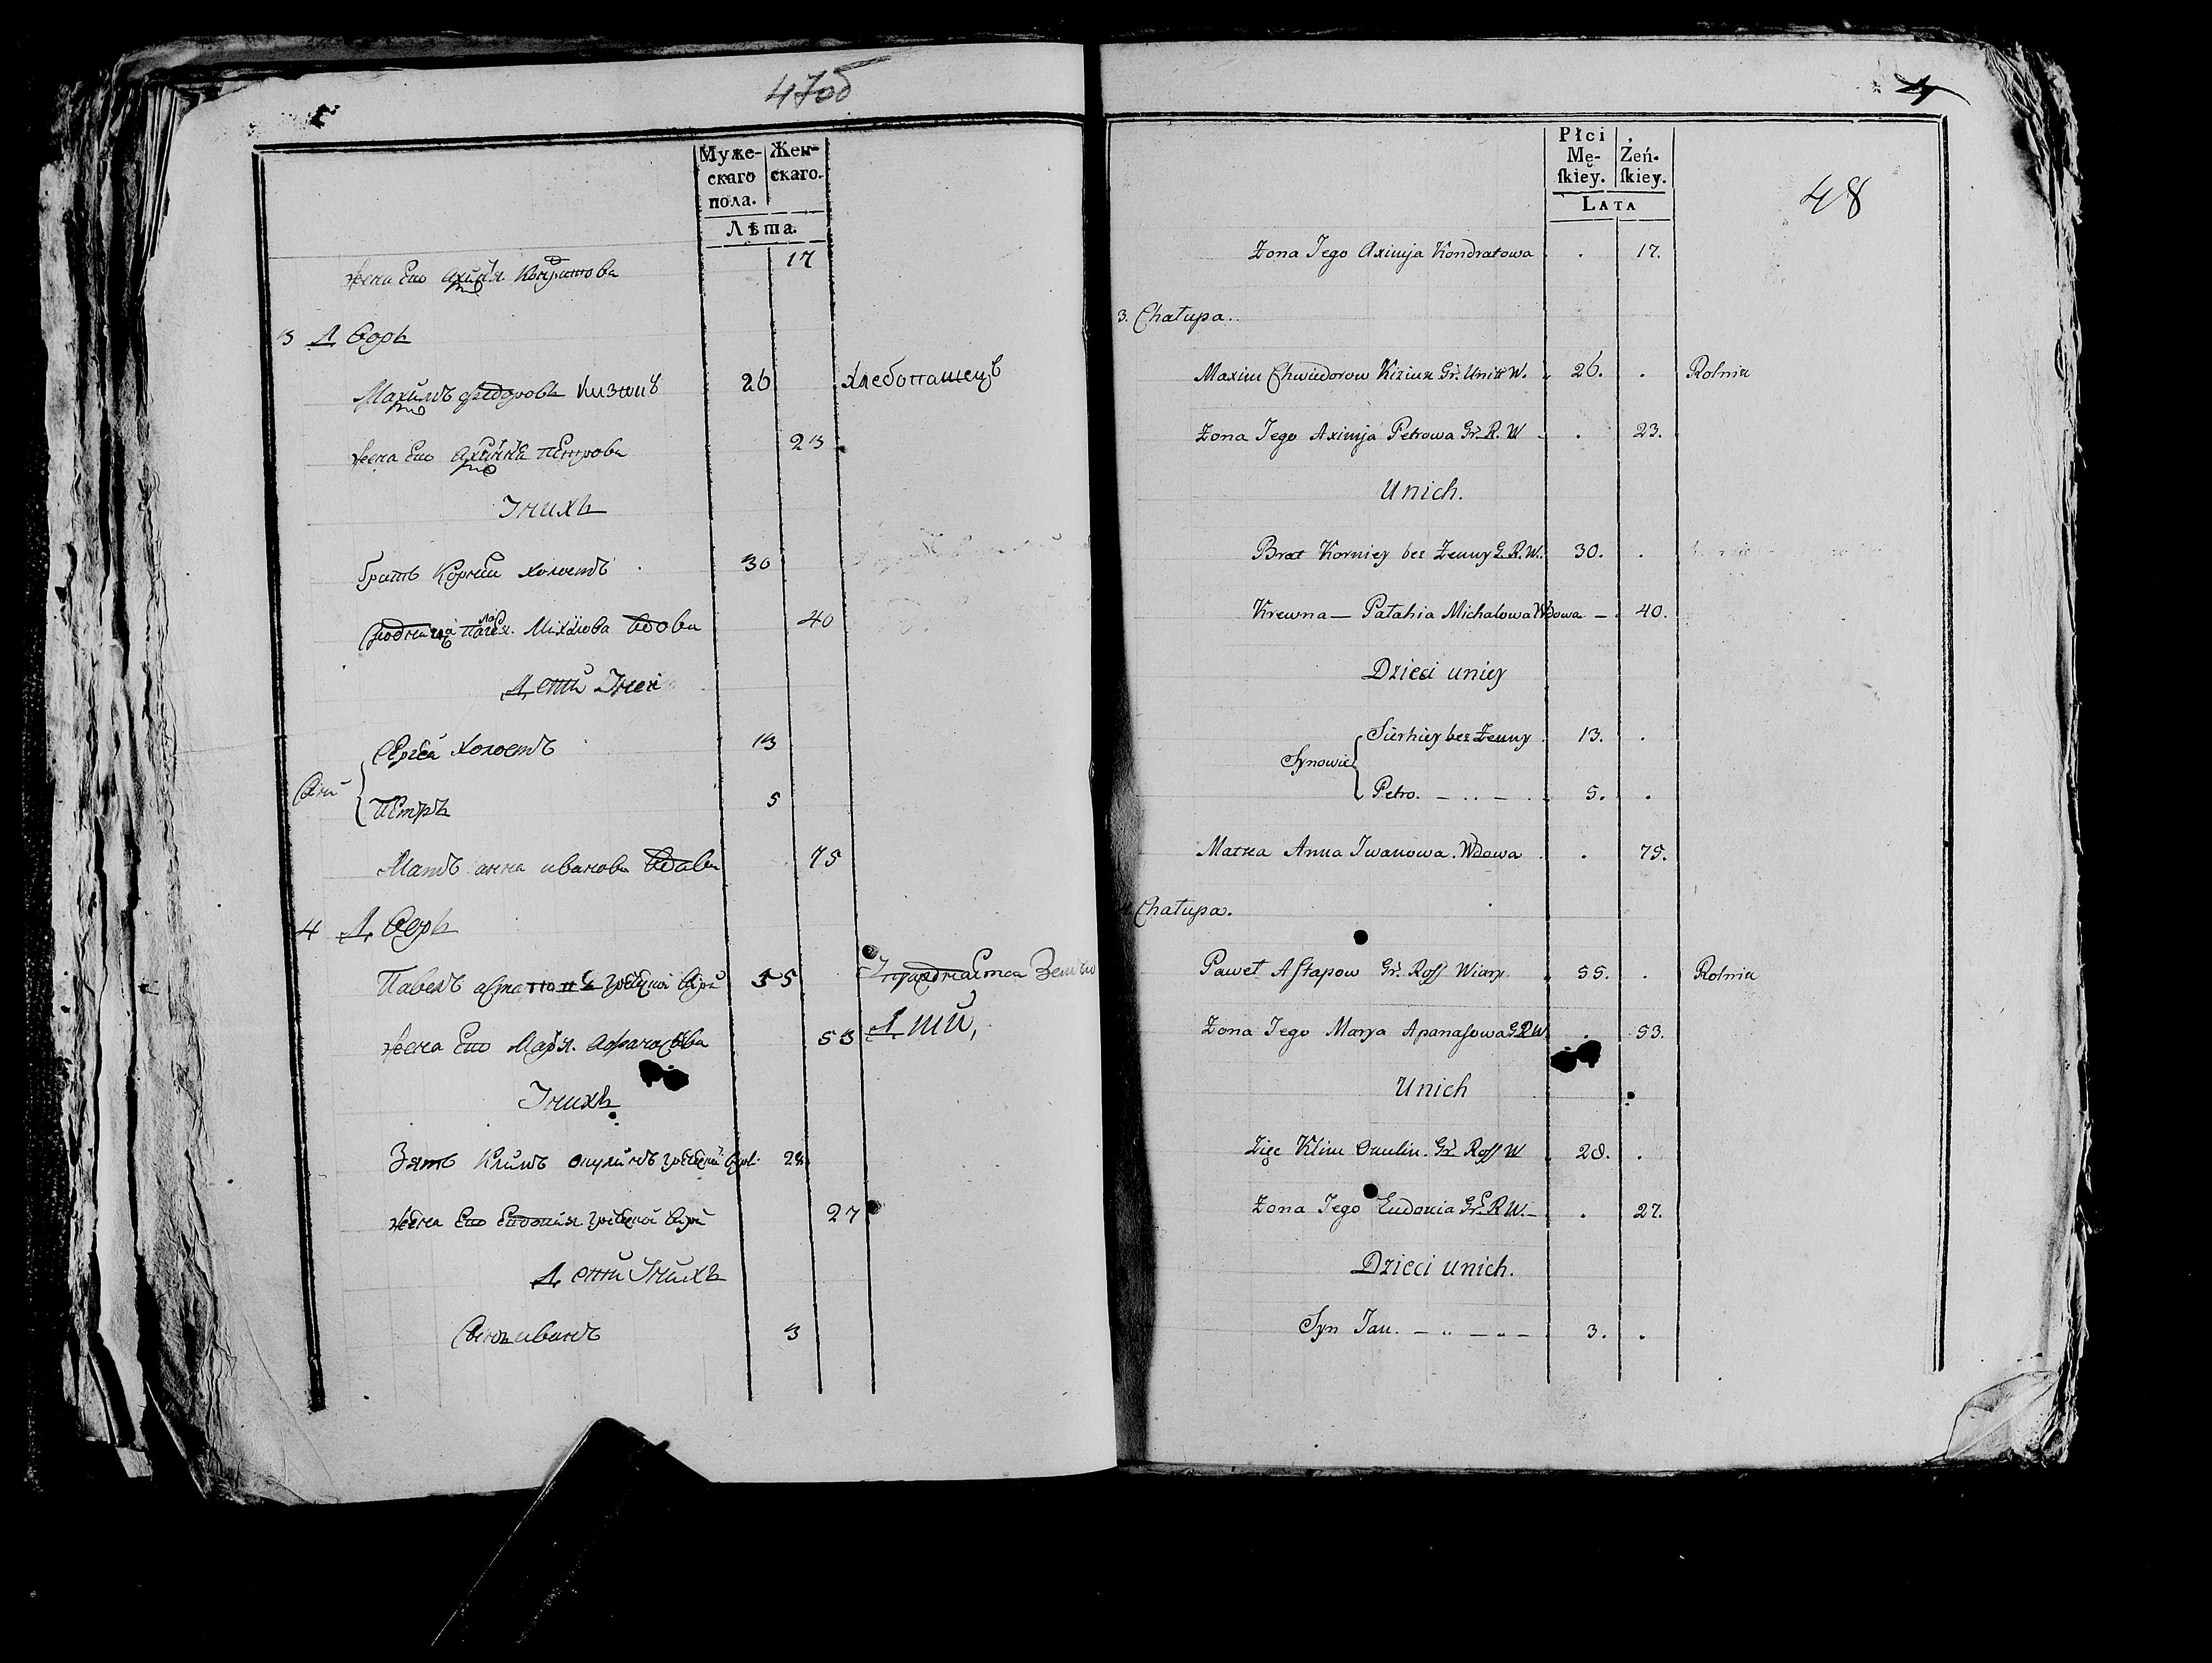 47об
Муже-
скаго
пола.
Жен-
скаго.
Лѣта.
жена Его Аксиня Кондратова 17
3 Дворъ
Максимъ Федоровъ Кизюкъ 26 Хлебопашецъ
жена Его Аксиня Петрова 23
У нихъ
братъ Корней холостъ 30
Михайлова вдова 40
Дети у ней
Сергей холостъ 13
Сыны
Петръ 5
Мать анна иванова вдава 75
4 Дворъ
Павелъ Греческой веры 55 упражняется Земле
жена Его Маря Афанасова 53 Дѣли
У нихъ
Зять Климъ Греческой веры 28
жена Его Евдокия Греческой веры 27
Дети У нихъ
Сынъ иванъ 3
48
Płci
Mę-
ſkiey.
Żeń-
ſkiey.
LATA
Żona Jego Aximja Kondratowa . 17.
3. Chałupa.
Maxim Chwiedorow Kiziuk Gr. Unitt W. 26. . Rolnik
Żona Jego Aximja Petrowa Gr. R. W . 23.
Unich.
Brat Korniey bez Żenny G. R. W. 30. .
Krewna — Patahia Michalowa Wdowa — 40.
Dzieci uniey
Sierhiey bez Żenny 13. .
Synowie
Petro. — .. — 5. .
Matka Anna Iwanowa. Wdowa . 75.
4. Chałupa.
Paweł Aſtapow Gr. Roſſ Wiary. 55. . Rolnik
Żona Jego Marya Apanaſowa G R W . 53.
Unich
Zięc Klim Omelin. Gr. Roſſ W 28. .
Żona Jego Eudokia Gr. R W. — . 27.
Dzieci unich.
Syn Jan. — .. — .. — 3. .